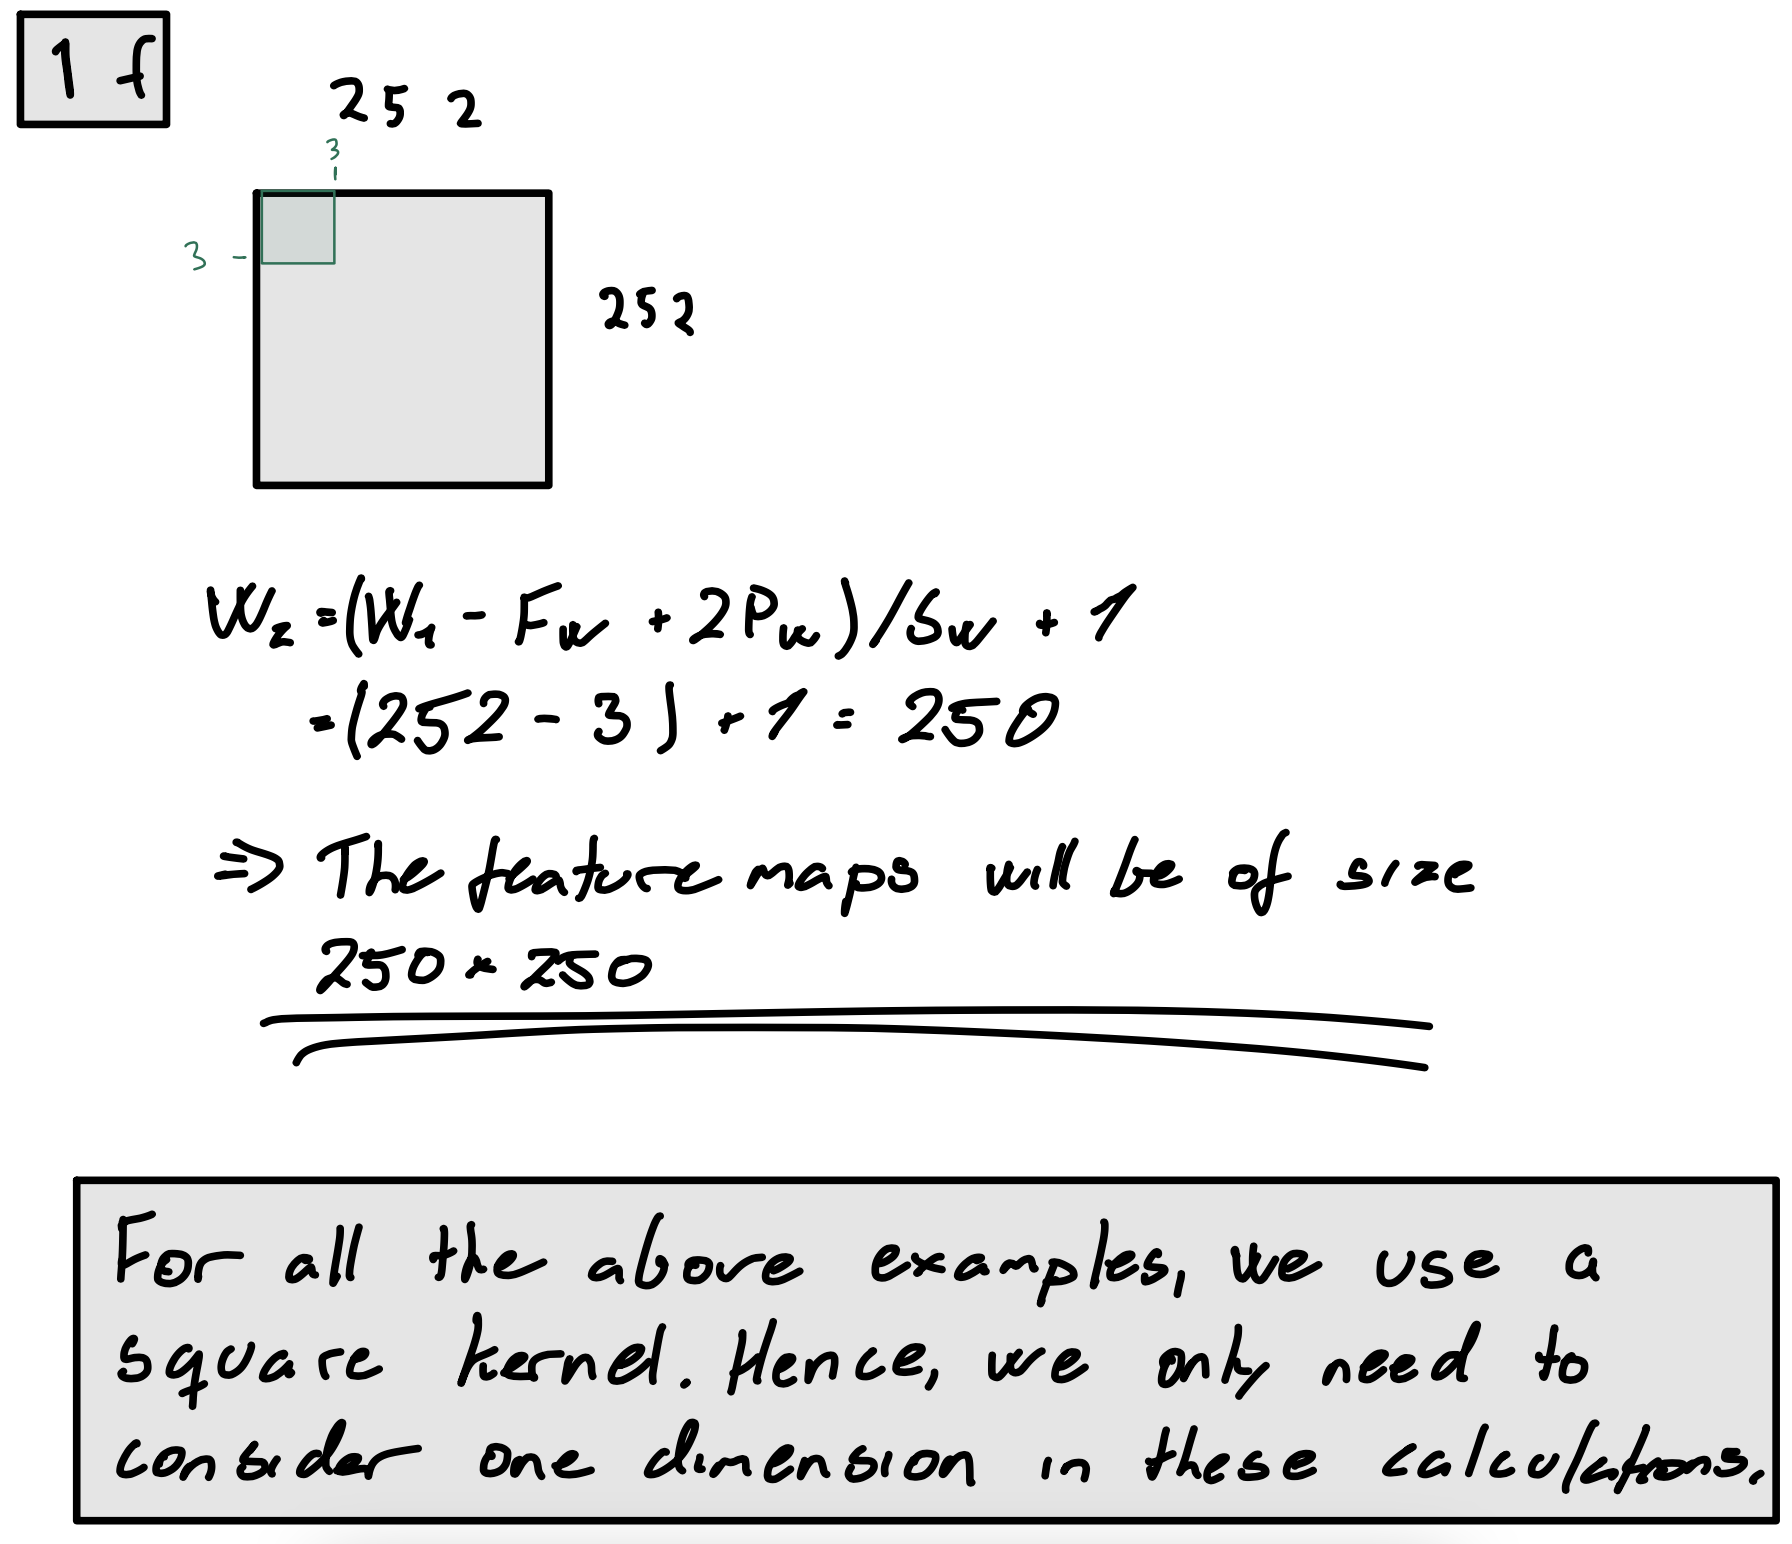 1 f
252
3
3 -
252
W₂ = (W₁ - F_w + 2P_w)/S_w + 1
= (252 - 3) + 1 = 250
⇒ The feature maps will be of size
250 × 250
For all the above examples, we use a
square kernel. Hence, we only need to
consider one dimension in these calculations.